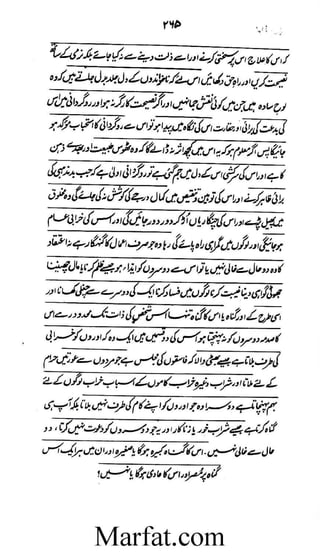 ۲۶۵
کہ اس کا علاج اس پر سختی کرنے اور اسے ذلت دینے سے نہ کیا جائے بلکہ نرمی کے ساتھ
نصیحت کریں اور راہِ حق دکھائیں اس لئے کہ ناخواندوں کے دل جلد بدل جاتے ہیں کہ وہ
لوحِ سادہ ہیں جن میں کوئی نقش جما نہیں اور اگر نصیحت کارگر نہ ہو اور روگردانی میں اس
کی بدعت کی برائی اور حقارت اس کی نگاہ میں پیدا ہو تو اس سے روگردانی کا استحباب مؤکد ہو
جائیگا پس اگر معلوم ہو کہ یہ اس میں کچھ اثر نہ ڈالے گا کہ وہ ٹھوس طبیعت اور ذہن
کا ہے اور اس کی سرکشی اس کے دل میں جم گئی ہے تو روگردانی اولیٰ ہے کہ جب بدمذہبی کی
برائی ظاہر کرنے اور اس کی توہین و تنقیص میں کمال درجے کی کوشش نہ کی جائے گی وہ مخلوق
میں پھیل پڑے اور اس کی چنگاریاں اڑ کر دور دور جائیں گی اور اس کی خرابی عام
ہو جائیگی اور لوگوں میں گمراہی راہ پائے گی رہا وہ جو صرف اعمال کا گنہگار ہے نہ اعتقاد
کا وہ دو حال سے خالی نہیں یا تو اس سے دوسروں کو ایذاء ہو جیسے ظلم کرنا یا مال چھیننا
جھوٹی گواہی دینا غیبت کرنا لوگوں میں فساد کرنا ایک کی دوسرے سے چغلی کھانا اور
اسی طرح کے اور گناہ یا اس کا گناہ تنہا اس شخص کی ذات تک محدود رہے اس
کا صدمہ دوسروں کو نہ پہنچتا ہو اس کی دو قسمیں ہیں ایک وہ کہ اوروں کو خرابی
کی طرف بلاتا ہے جیسے بھٹی والا کہ فاسقوں کی مجلس ہے جو مردوں سے عورتیں حرام
کے لئے ملاتا اور شراب وغیرہ خراب کاموں کے اسباب خراب لوگوں کے لئے
بہم پہنچاتا ہے دوسرا وہ جو اوروں کو اپنے کام کی طرف نہیں بلاتا بلکہ آپ ہی
گناہ کرتا ہے جیسے شراب خور یا زنا کار اور یہ جو دوسروں کو دعوت نہیں کرتا، دو
حال سے خالی نہیں۔ اس کا گناہ کبیرہ ہوگا یا صغیرہ اور ان میں ہر ایک اس
گناہ پر مُصر اور اس کا عادی ہوگا یا نہیں؟
Marfat.com